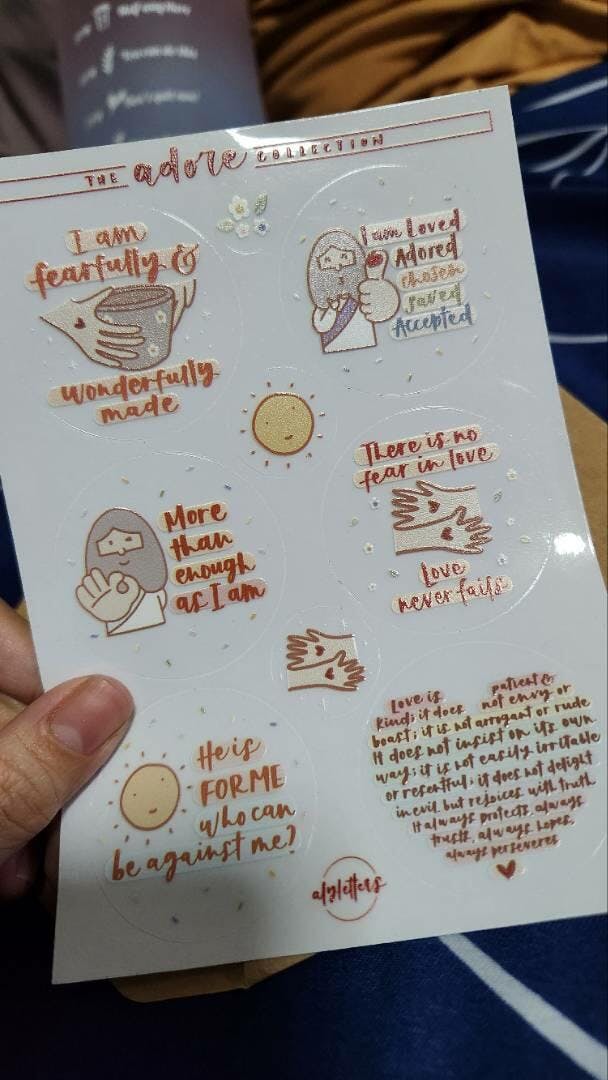 THE adore COLLECTION
I am
fearfully &
wonderfully
made
I am Loved
Adored
chosen
saved
Accepted
More
than
enough
as I am
There is no
fear in love
Love
never fails
He is
FOR ME
who can
be against me?
Love is patient &
kind; it does not envy or
boast; it is not arrogant or rude
It does not insist on its own
way; it is not easily irritable
or resentful; it does not delight
in evil but rejoices with truth
It always protects, always
trusts, always hopes,
always perseveres
alyletters